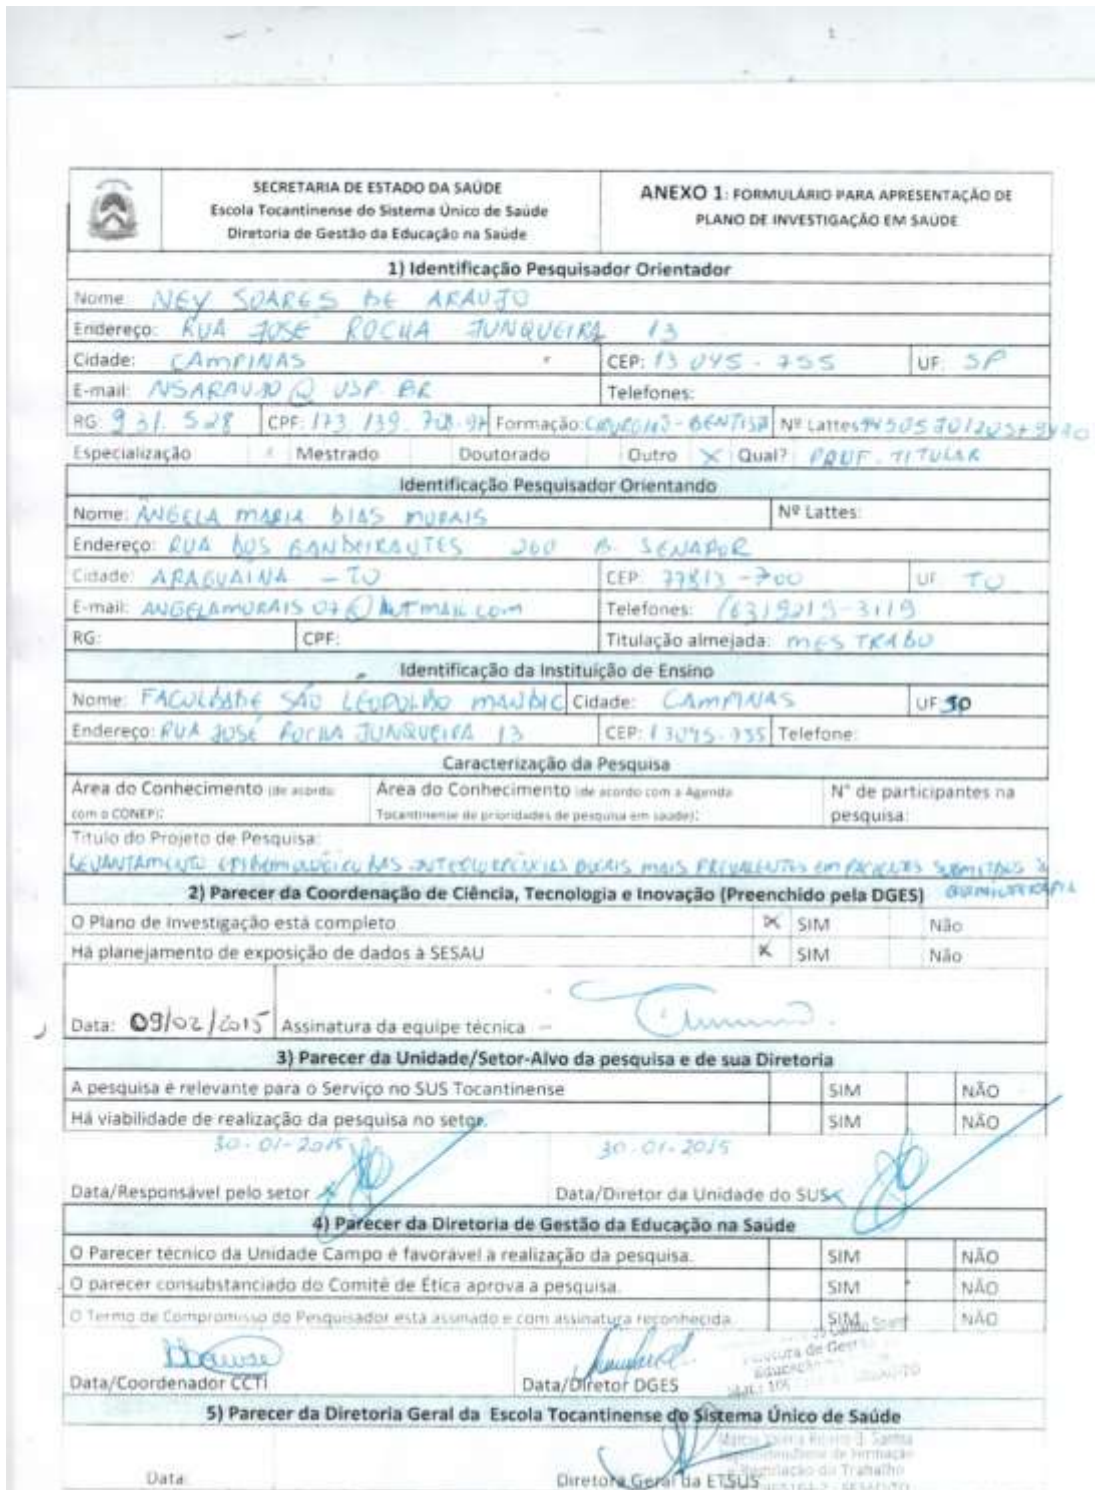 SECRETARIA DE ESTADO DA SAÚDE
Escola Tocantinense do Sistema Único de Saúde
Diretoria de Gestão da Educação na Saúde
ANEXO 1: FORMULÁRIO PARA APRESENTAÇÃO DE
PLANO DE INVESTIGAÇÃO EM SAÚDE
1) Identificação Pesquisador Orientador
Nome: NEY SOARES DE ARAUJO
Endereço: RUA JOSÉ ROCHA JUNQUEIRA 13
Cidade: CAMPINAS CEP: 13 045 - 755 UF: SP
E-mail: NSARAUJO@USP.BR Telefones:
RG: 931.528 CPF: 173.139. Formação: CIRURGIÃO-DENTISTA Nº Lattes
Especialização Mestrado Doutorado Outro X Qual? PROF. TITULAR
Identificação Pesquisador Orientando
Nome: ÂNGELA MARIA DIAS MORAIS Nº Lattes:
Endereço: RUA DOS BANDEIRANTES 260 B. SENADOR
Cidade: ARAGUAINA - TO CEP: 77813-700 UF TO
E-mail: ANGELAMORAIS07@HOTMAIL.COM Telefones: (63)9219-3119
RG: CPF: Titulação almejada: MESTRADO
Identificação da Instituição de Ensino
Nome: FACULDADE SÃO LEOPOLDO MANDIC Cidade: CAMPINAS UF SP
Endereço: RUA JOSÉ ROCHA JUNQUEIRA 13 CEP: 13045-755 Telefone:
Caracterização da Pesquisa
Área do Conhecimento (de acordo com o CONEP):
Área do Conhecimento (de acordo com a Agenda Tocantinense de prioridades de pesquisa em saúde):
N° de participantes na pesquisa:
Título do Projeto de Pesquisa:
LEVANTAMENTO EPIDEMIOLÓGICO DAS INTERCORRÊNCIAS BUCAIS MAIS PREVALENTES EM PACIENTES SUBMETIDOS À
QUIMIOTERAPIA
2) Parecer da Coordenação de Ciência, Tecnologia e Inovação (Preenchido pela DGES)
O Plano de Investigação está completo X SIM Não
Há planejamento de exposição de dados à SESAU X SIM Não
Data: 09/02/2015 Assinatura da equipe técnica
3) Parecer da Unidade/Setor-Alvo da pesquisa e de sua Diretoria
A pesquisa é relevante para o Serviço no SUS Tocantinense SIM NÃO
Há viabilidade de realização da pesquisa no setor. SIM NÃO
30-01-2015 30-01-2015
Data/Responsável pelo setor Data/Diretor da Unidade do SUS
4) Parecer da Diretoria de Gestão da Educação na Saúde
O Parecer técnico da Unidade Campo é favorável à realização da pesquisa. SIM NÃO
O parecer consubstanciado do Comitê de Ética aprova a pesquisa. SIM NÃO
O Termo de Compromisso do Pesquisador está assinado e com assinatura reconhecida. SIM NÃO
Data/Coordenador CCTI Data/Diretor DGES
5) Parecer da Diretoria Geral da Escola Tocantinense do Sistema Único de Saúde
Data: Diretora Geral da ETSUS